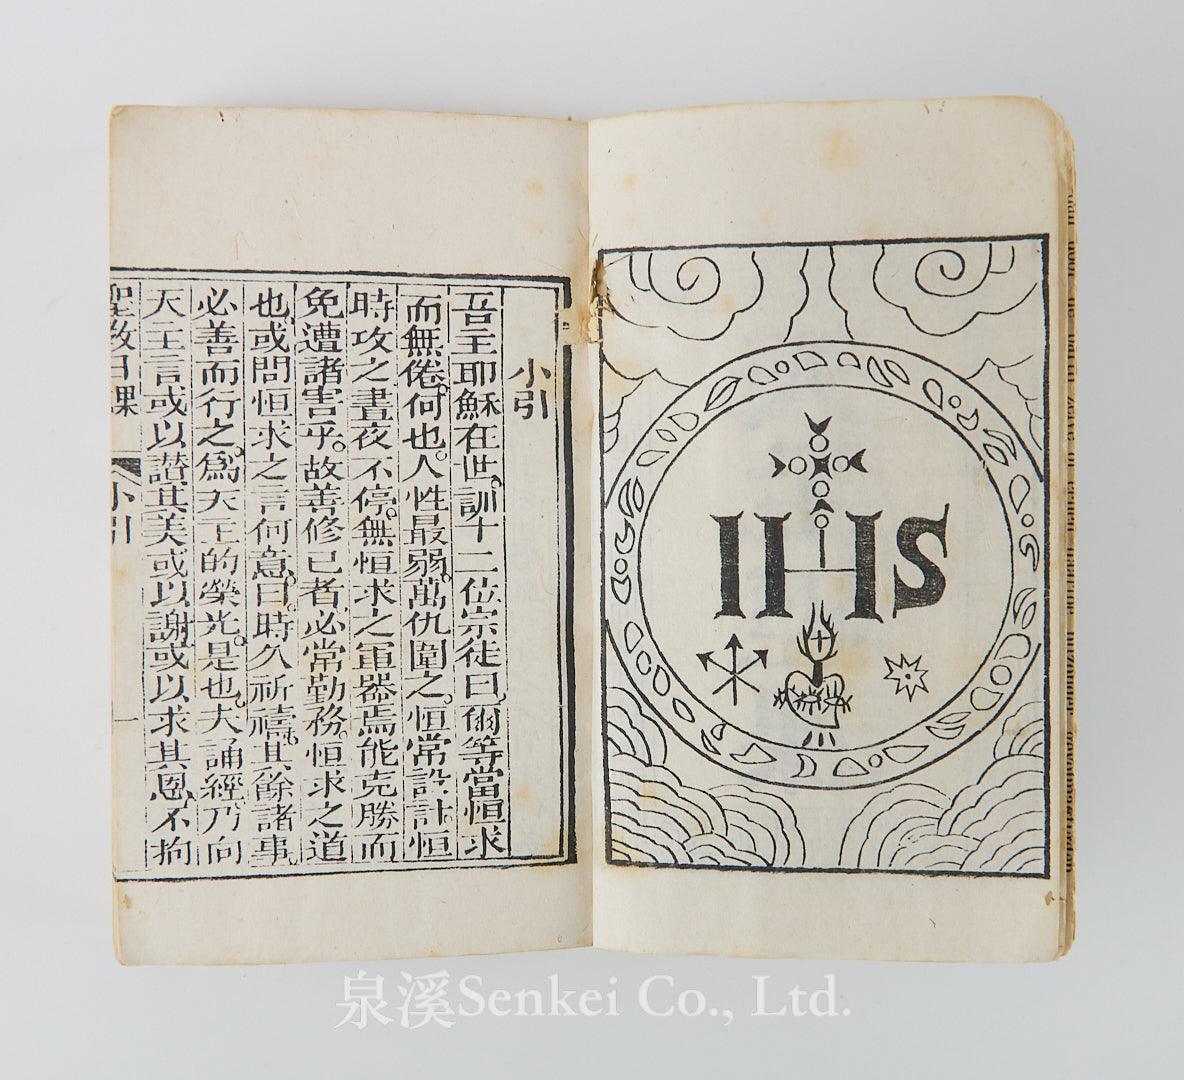 IHS
小引
吾主耶穌在世。訓十二位宗徒曰。爾等當恒求
而無倦。何也。人性最弱。萬仇圍之。恒常設計。恒
時攻之。晝夜不停。無恒求之軍器焉能克勝而
免遭諸害乎。故善修己者必常勤務。恒求之道
也。或問恒求之言何意。曰。時久祈禱。其餘諸事。
必善而行之。爲天主的榮光。是也。大誦經乃向
天主言或以讚其美或以謝。或以求其恩。不拘
聖教日課 小引 一
泉溪Senkei Co., Ltd.